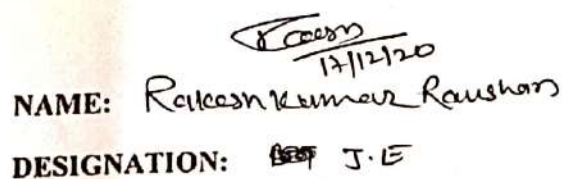 17/12/20
NAME: Rakesh Kumar Raushan
DESIGNATION: J.E